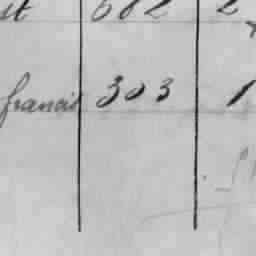 st 682 2
francis 303 1